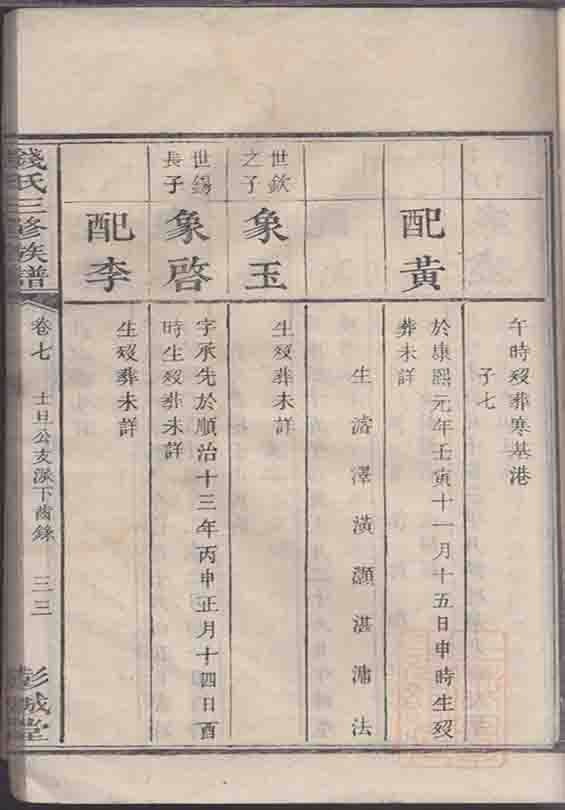 午時歿葬寒基港
子七
配黃
於康熙元年壬寅十一月十五日申時生歿
葬未詳
生 濤 澤 潢 灝 湛 濂 法
世欽
之子
象玉
生歿葬未詳
世錫
長子
象啓
字承先於順治十三年丙申正月十四日酉
時生歿葬未詳
配李
生歿葬未詳
錢氏三修族譜
卷七
士旦公支派下齒錄
三三
彭城堂